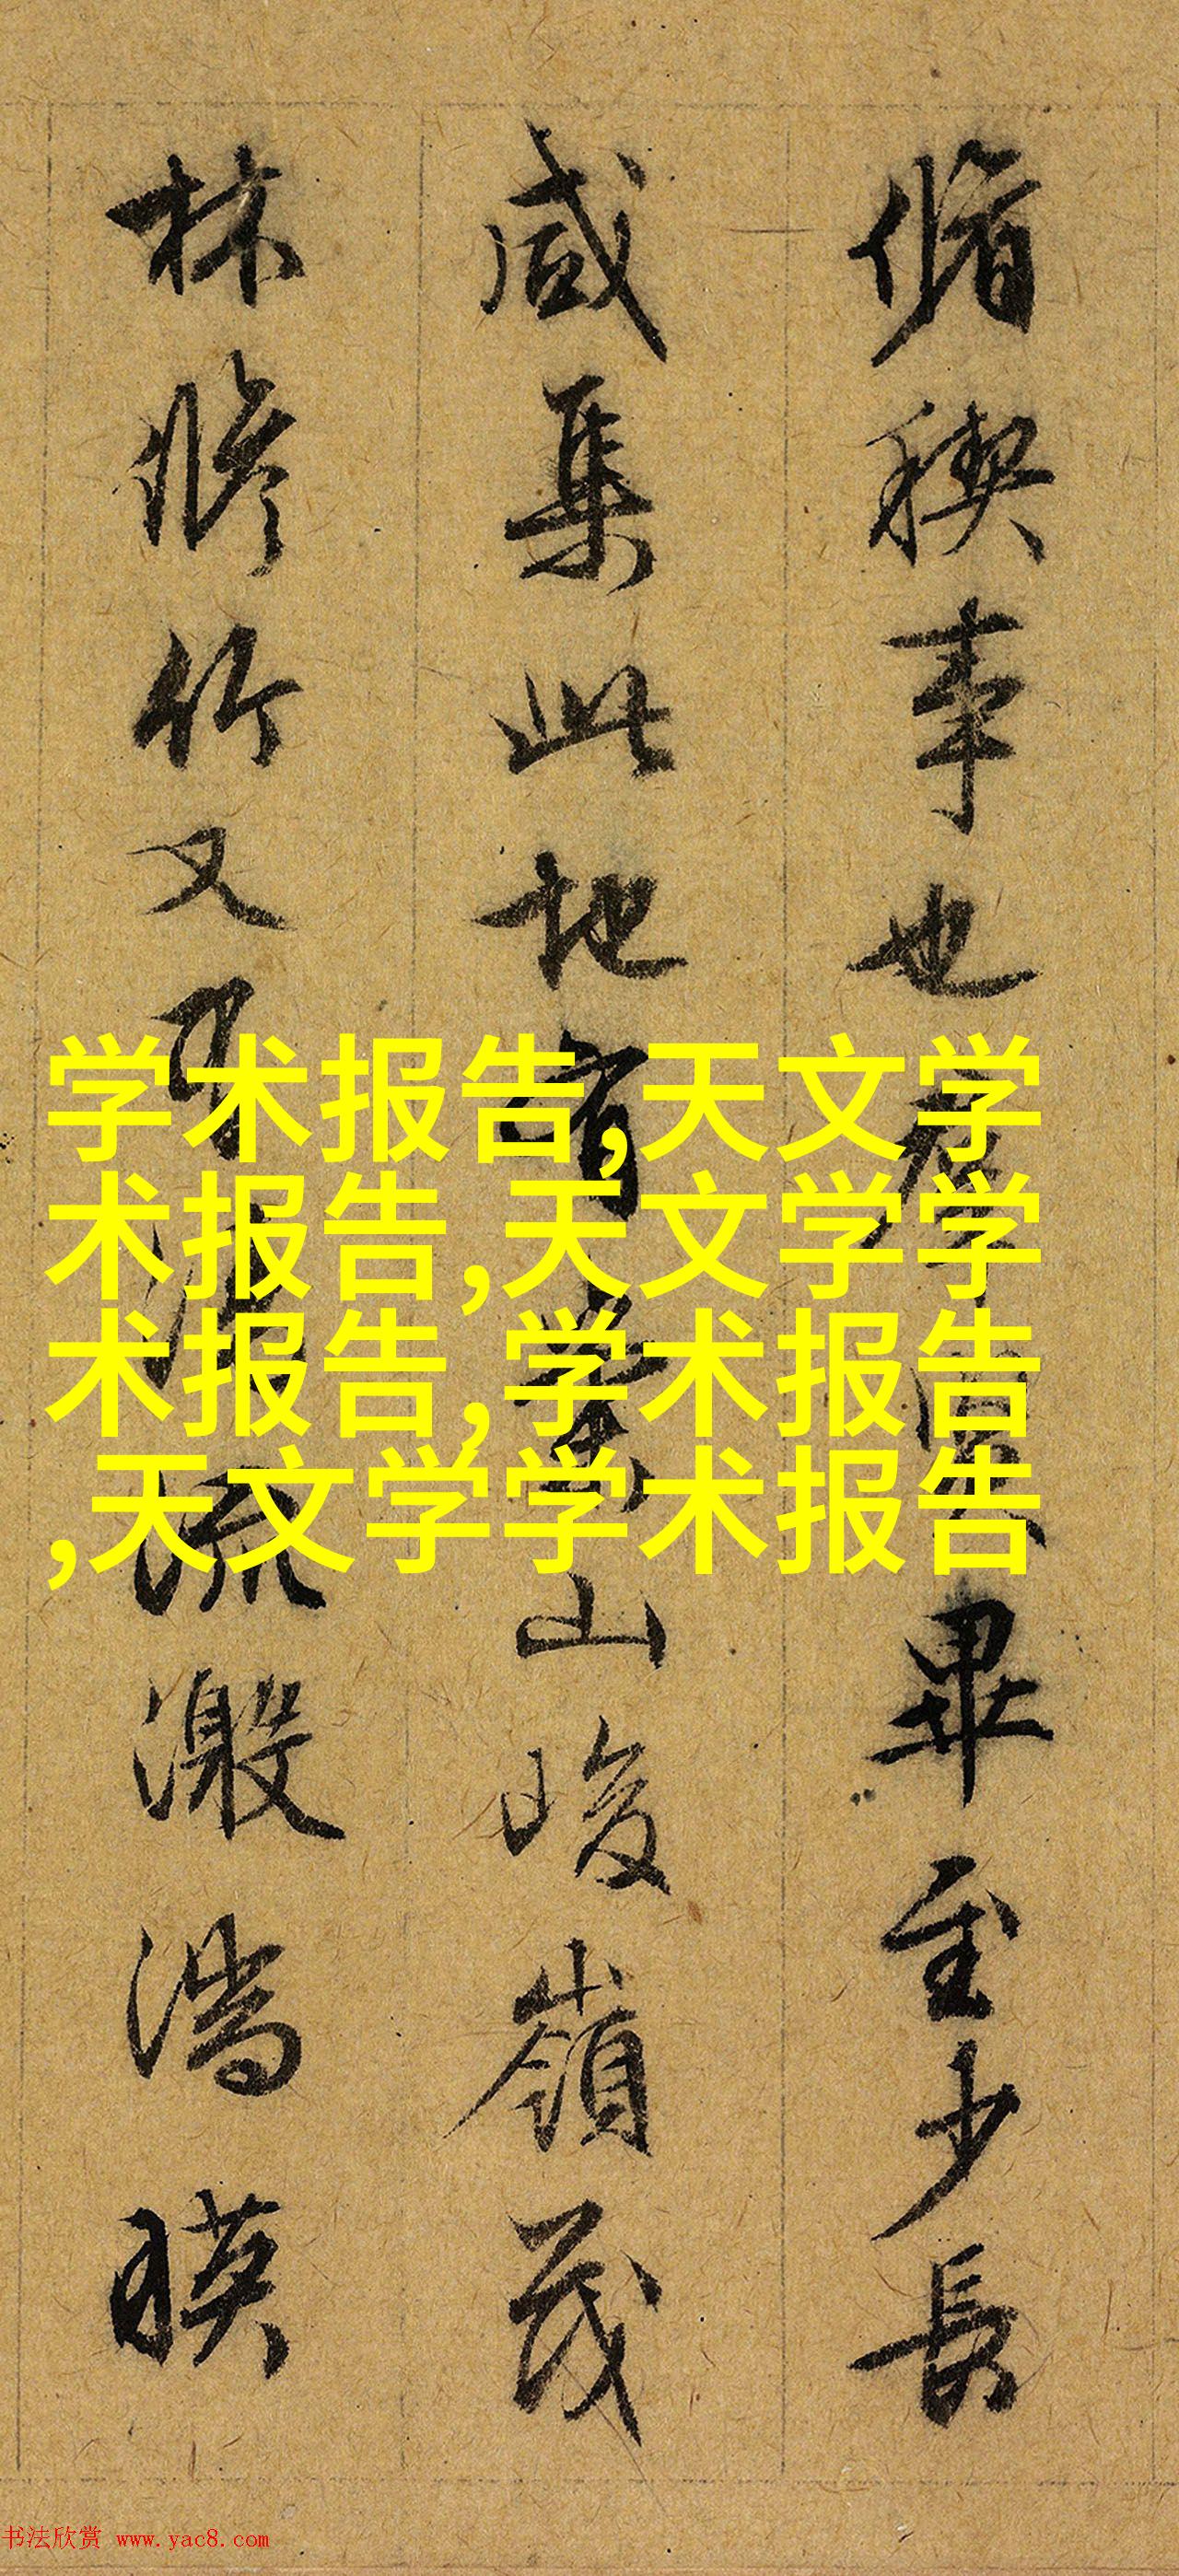 脩稧事也群賢畢至少長
咸集此地有崇山峻領茂
林脩竹又有清流激湍暎
学术报告,天文学
术报告,天文学学
术报告,学术报告
,天文学学术报告
书法欣赏 www.yac8.com